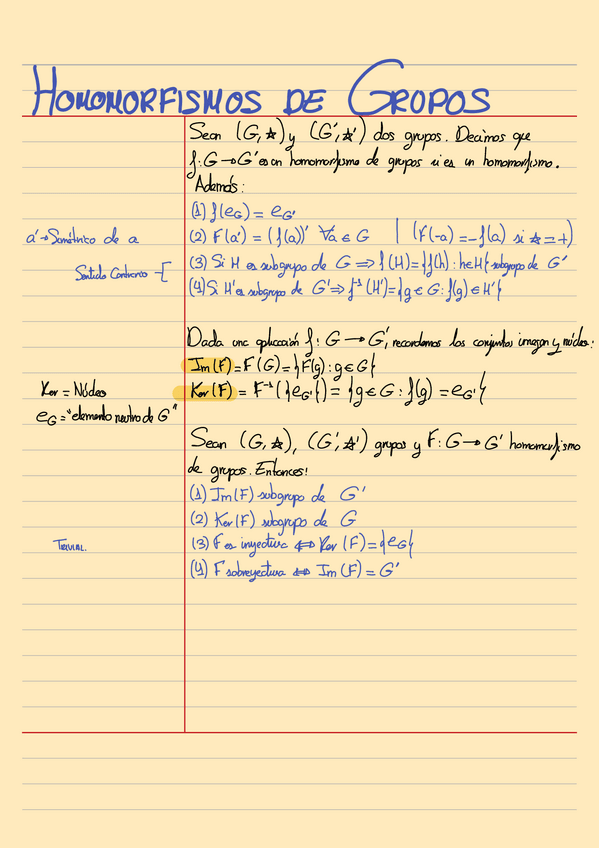 HOMOMORFISMOS DE GRUPOS
Sean (G,☆) y (G',☆') dos grupos. Decimos que
f: G → G' es un homomorfismo de grupos si es un homomorfismo.
Además:
(1) f(e_G) = e_G'
a' → Simétrico de a
(2) F(a') = (f(a))' ∀a ∈ G | (F(-a) = -f(a) si ☆ = +)
Sentido Contrario -[
(3) Si H es subgrupo de G ⇒ f(H) = {f(h) : h ∈ H} subgrupo de G'
(4) Si H' es subgrupo de G' ⇒ f⁻¹(H') = {g ∈ G : f(g) ∈ H'}
Dada una aplicación f: G → G', recordemos los conjuntos imagen y núcleo:
Im(F) = F(G) = {F(g) : g ∈ G}
Ker = Núcleo
Ker(F) = F⁻¹({e_G'}) = {g ∈ G : f(g) = e_G'}
e_G = "elemento neutro de G"
Sean (G,☆), (G',☆') grupos y F: G → G' homomorfismo
de grupos. Entonces:
(1) Im(F) subgrupo de G'
(2) Ker(F) subgrupo de G
(3) F es inyectiva ⇔ Ker(F) = {e_G}
TRIVIAL.
(4) F sobreyectiva ⇔ Im(F) = G'